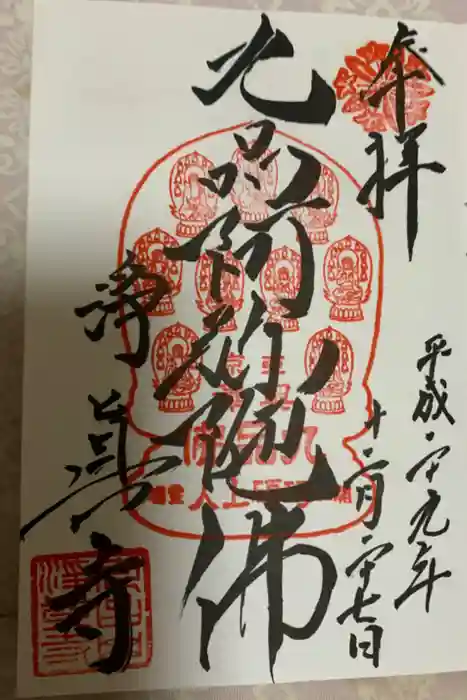 奉拝
平成二十九年
十二月二十七日
九品阿弥陀佛
浄真寺